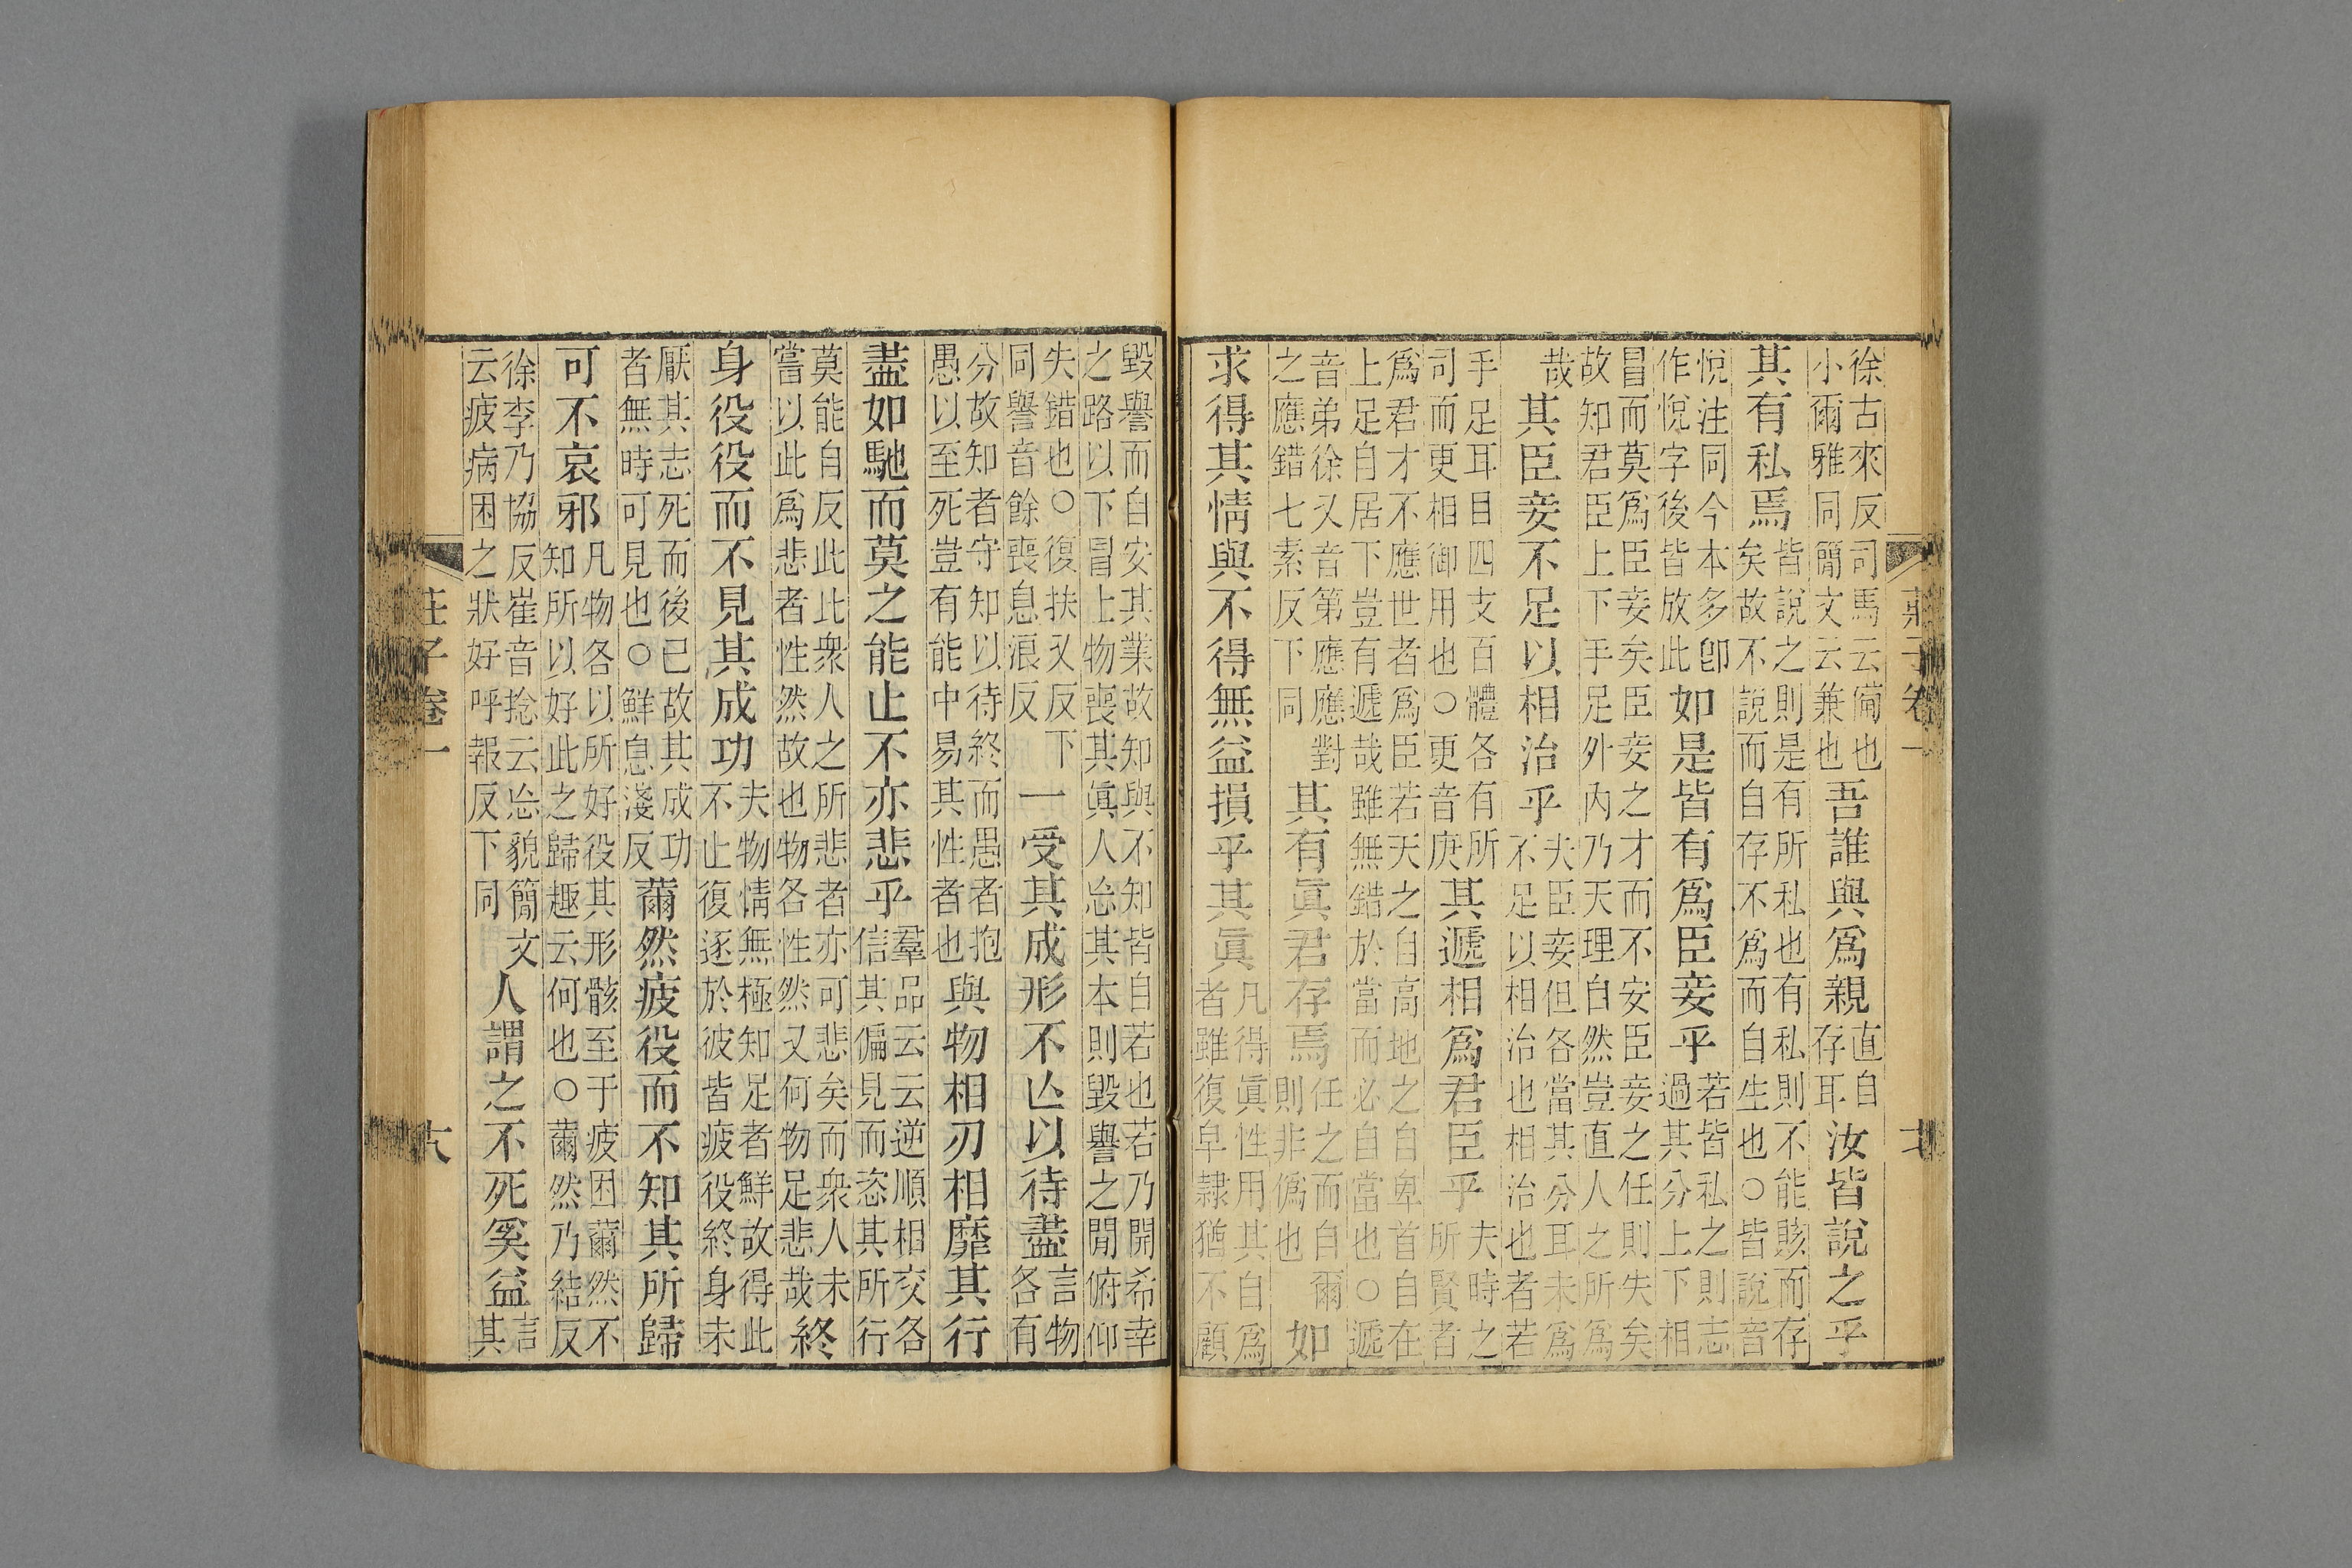 莊子卷一
徐古來反司馬云備也小爾雅同簡文云兼也吾誰與爲親直自存耳汝皆說之乎
其有私焉皆說之則是有所私也有私則不能賅而存矣故不說而自存不爲而自生也○皆說音
悅注同今本多卽作悅字後皆放此如是皆有爲臣妾乎若皆私之則志過其分上下相
冒而莫爲臣妾矣臣妾之才而不安臣妾之任則失矣故知君臣上下手足外內乃天理自然豈直人之所爲
哉其臣妾不足以相治乎夫臣妾但各當其分耳未爲不足以相治也相治也者若
手足耳目四支百體各有所司而更相御用也○更音庚其遞相爲君臣乎夫時之所賢者
爲君才不應世者爲臣若天之自高地之自卑首自在上足自居下豈有遞哉雖無錯於當而必自當也○遞
音弟徐又音第應應對之應錯七素反下同其有眞君存焉任之而自爾則非僞也如
求得其情與不得無益損乎其眞凡得眞性用其自爲者雖復皁隸猶不顧
毀譽而自安其業故知與不知皆自若也若乃開希幸之路以下冒上物喪其眞人忘其本則毀譽之閒俯仰
失錯也○復扶又反下同譽音餘喪息浪反一受其成形不亾以待盡言物各有
分故知者守知以待終而愚者抱愚以至死豈有能中易其性者也與物相刃相靡其行
盡如馳而莫之能止不亦悲乎羣品云云逆順相交各信其偏見而恣其所行
莫能自反此此衆人之所悲者亦可悲矣而衆人未嘗以此爲悲者性然故也物各性然又何物足悲哉終
身役役而不見其成功夫物情無極知足者鮮故得此不止復逐於彼皆疲役終身未
厭其志死而後已故其成功者無時可見也○鮮息淺反薾然疲役而不知其所歸
可不哀邪凡物各以所好役其形骸至于疲困薾然不知所以好此之歸趣云何也○薾然乃結反
徐李乃協反崔音捻云忘貌簡文云疲病困之狀好呼報反下同人謂之不死奚益言其
莊子卷一